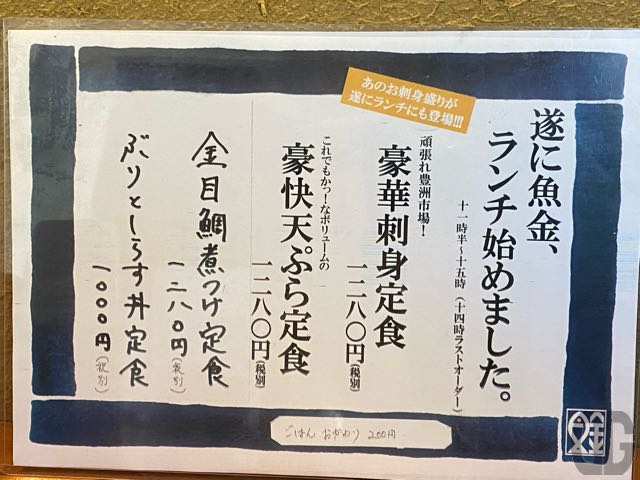 遂に魚金、
ランチ始めました。
十一時半~十五時(十四時ラストオーダー)
あのお刺身盛りが
遂にランチにも登場!!!
頑張れ豊洲市場!
豪華刺身定食
一二八〇円(税別)
これでもかっ!なボリュームの
豪快天ぷら定食
一二八〇円(税別)
金目鯛煮つけ定食
一二八〇円(税別)
ぶりとしらす丼定食
一〇〇〇円(税別)
ごはん おかわり 200円